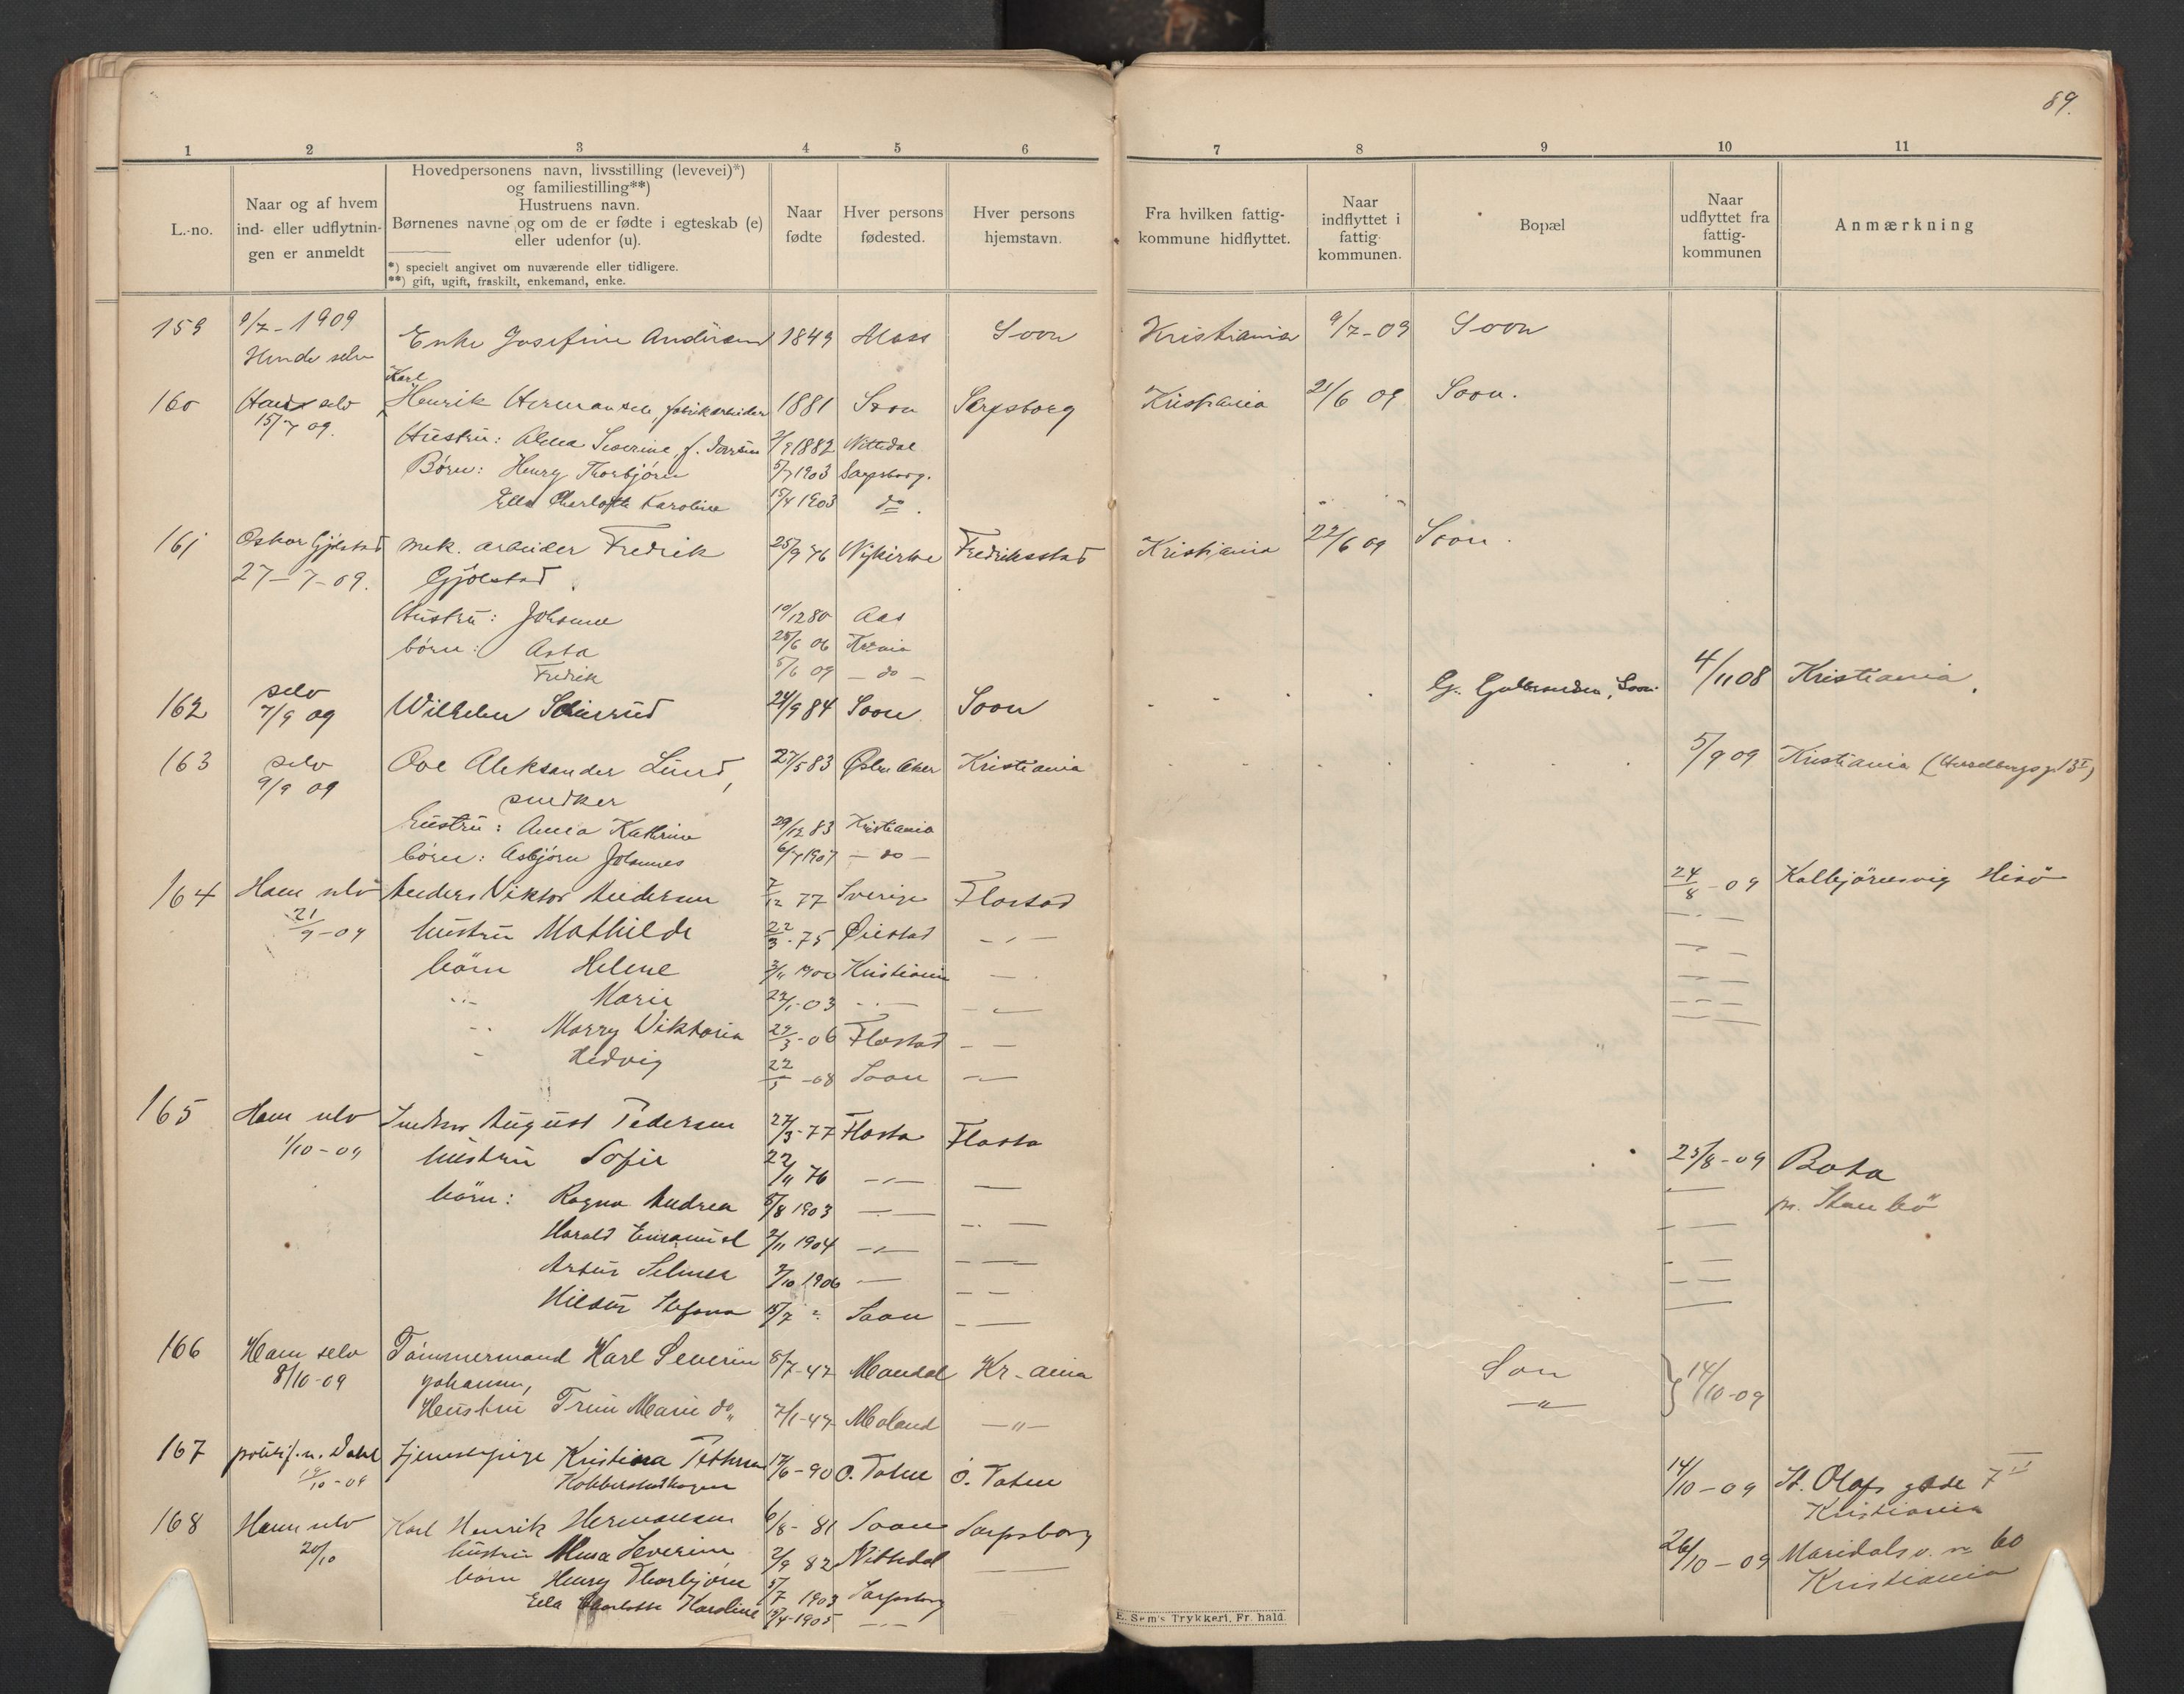 89.
1 2 3 4 5 6 7 8 9 10 11
L.-no.
Naar og af hvem
ind- eller udflytnin-
gen er anmeldt
Hovedpersonens navn, livsstilling (levevei)*)
og familiestilling**)
Hustruens navn.
Børnenes navne og om de er fødte i egteskab (e)
eller udenfor (u).
*) specielt angivet om nuværende eller tidligere.
**) gift, ugift, fraskilt, enkemand, enke.
Naar
fødte
Hver persons
fødested.
Hver persons
hjemstavn.
Fra hvilken fattig-
kommune hidflyttet.
Naar
indflyttet i
fattig-
kommunen.
Bopæl
Naar
udflyttet fra
fattig-
kommunen
Anmærkning
159 9/7-1909 Enke Josefine Andersen 1849 Moss Soon Kristiania 9/7-09 Soon
Hende selv
Karl
160 Ham selv Henrik Hermansen, fabrikarbeider 1881 Soon Sarpsborg Kristiania 21/6 09 Soon.
15/7 09.
Hustru: Alma Severine, f. 2/9 1882 Nittedal
Børn: Henry Thorbjørn 5/7 1903 Sarpsborg.
Ella Charlotte Karoline 15/4 1903 do.
161 Oskar Gjølstad mek. arbeider Fredrik 25/9 76 Nykirke Fredriksstad Kristiania 22/6 09 Soon.
27-7-09. Gjølstad.
Hustru: Johanne 10/12 80 Aas
børn: Asta 25/6 06 Kr.ania
Fredrik 5/6 09 - do -
162 selv Wilhelm 24/9 84 Soon Soon G. Gulbrandsen, Soon. 4/11 08 Kristiania.
7/9 09
163 selv Ove Aleksander Lund, 27/5 83 Østre Aker Kristiania 5/9 09 Kristiania
9/9 09 snedker
hustru: Anna Kathrine 29/12 83 Kristiania
børn: Asbjørn Johannes 6/7 1907 - do -
164 Ham selv Anders Viktor Andersen 7/12 77 Sverige Flostad 24/8-09 Kolbjörnsvig Hisö
21/9-09 hustru Mathilde 22/3-75 Øiestad - " -
börn Helene 3/11 1900 Kristiania -
" - Marie 22/1-03 - " - - " -
" Marry Viktoria 24/3-06 Flostad - -
- Hedvig 22/5-08 Soon - " -
165 Ham selv Snedker August Pedersen 27/3-77 Flosta Flosta 25/8-09 Bota
1/10-09 hustru Sofie 22/11 76 - " - — pr. Staubö
börn: Ragna Andrea 5/8 1903 - " -
Harald Emanuel 2/11 1904 - " -
Artur Selmer 2/10 1906 —
Hildur Stefana 15/7 " Soon
166 Ham selv Tömmermand Karl Severin 8/7-47 Mandal Kr-ania Son 14/10-09
8/10-09 Johansen,
Hustru Trine Marie do, 7/1-47 Moland - " - - " -
167 politif. n. Dahl Tjenestepige Kristina Pettersen 17/6-90 Ö. Toten Ö. Toten 14/10-09 St. Olafs gade 7 II
19/10-09 Kristiania
168 Ham selv Karl Henrik Hermansen 6/8-81 Soon Sarpsborg 26/10-09 Maridalsv. no 60
20/10 hustru Alma Severine 2/9 82 Nittedal — Kristiania
börn Henry Thorbjörn 5/7 1903 Sarpsborg
Ella Charlotte Karoline 15/4-1905 - " -
E. Sem's Trykkeri, Fr.hald.